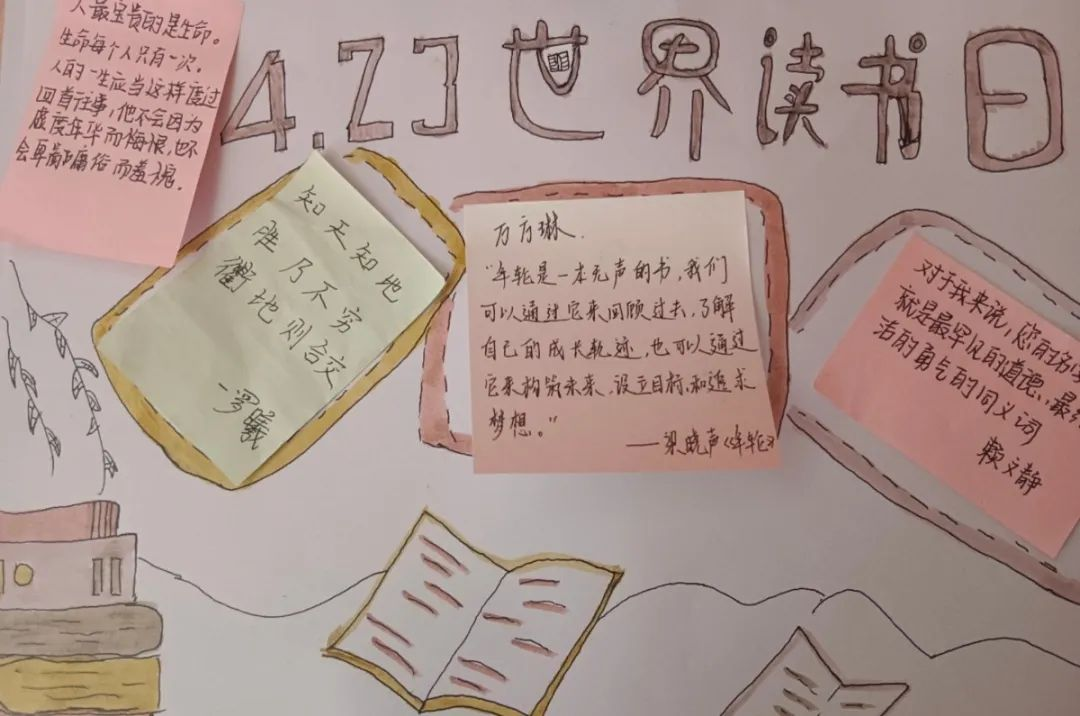 4.23世界读书日
人最宝贵的是生命。
生命每个人只有一次。
人的一生应当这样度过
回首往事，他不会因为
虚度年华而悔恨，也不
会卑鄙庸俗而羞愧.
知天知地
胜乃不穷
衢地则合交
-罗曦
万方琳.
"年轮是一本无声的书，我们
可以通过它来回顾过去，了解
自己的成长轨迹，也可以通过
它来构筑未来、设立目标，和追求
梦想。"
——梁晓声《年轮》
对于我来说，您的名
就是最罕见的道德、最
洁的勇气的同义词
赖文静